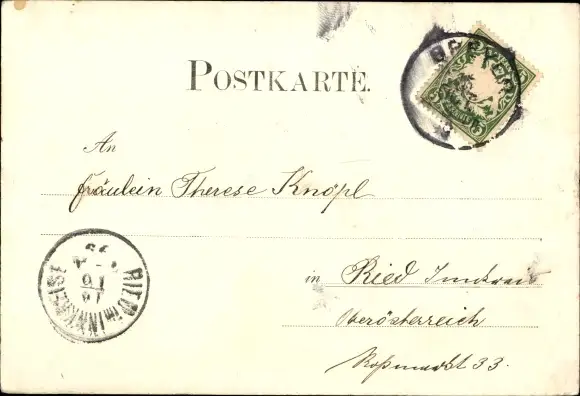 POSTKARTE.
An
Fräulein Therese Knöpl
in Ried Innkreis
Oberösterreich
Roßmarkt 33.
RIED im INNKREISE